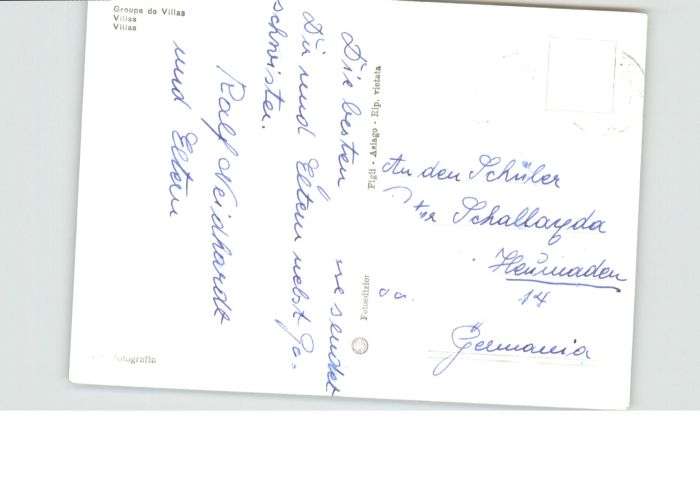 Groupe de Villas
Villas
Villas
Die besten
sendet
Dir und Eltern nebst Ge-
schwister.
Ralf Neidhardt
und Eltern
Figli - Asiago - Rip. vietata
Fotoedizioni
fotografia
An den Schüler
Schallayda
Heumaden
14
Germania